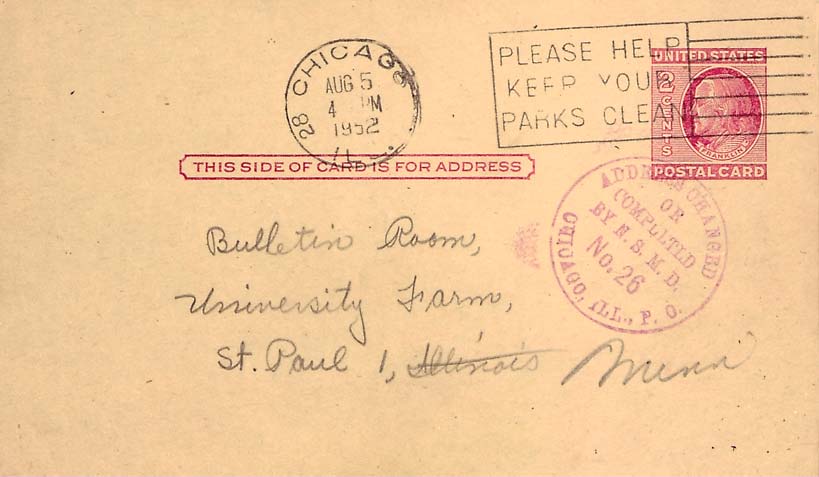 28 CHICAGO
AUG 5
4 PM
1952
ILL.
PLEASE HELP
KEEP YOUR
PARKS CLEAN
UNITED STATES
2 CENTS
FRANKLIN
POSTAL CARD
THIS SIDE OF CARD IS FOR ADDRESS
ADDRESS CHANGED
OR
COMPLETED
BY N. S. M. D.
No. 26
CHICAGO, ILL., P. O.
Bulletin Room,
University Farm,
St. Paul 1, Illinois Minn